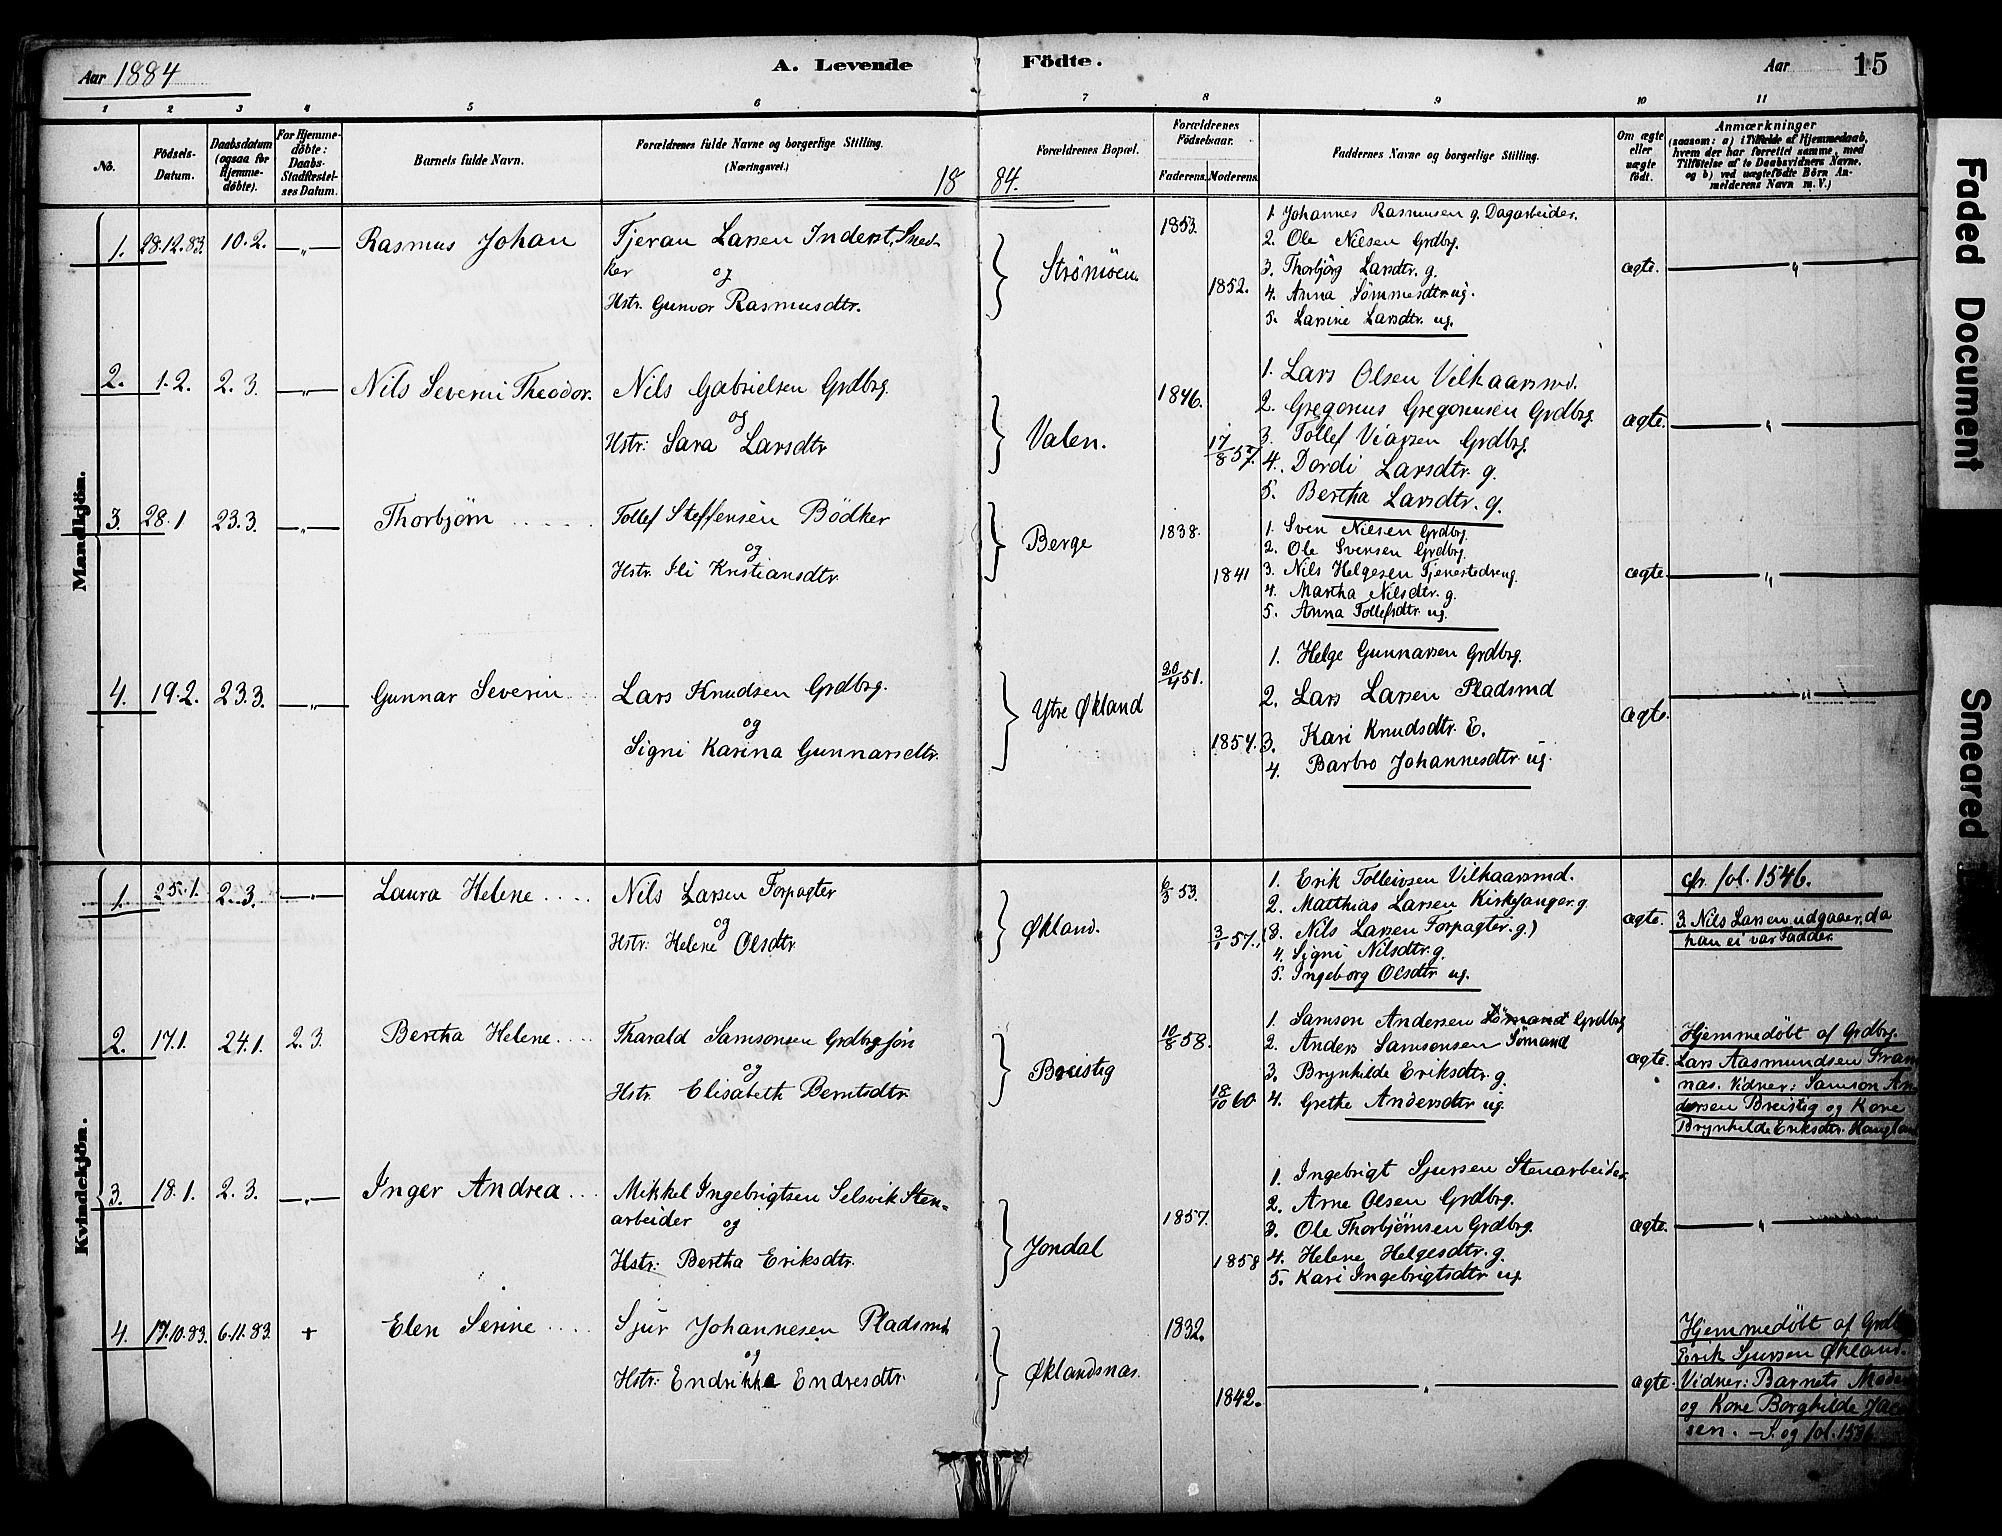 Aar 1884
A. Levende Födte.
Aar
15
1 2 3 4 5 6 7 8 9 10 11
No.
Födsels-Datum.
Daabsdatum (ogsaa for Hjemmedöbte).
For Hjemmedöbte: Daabs-Stadfæstelses Datum.
Barnets fulde Navn.
Forældrenes fulde Navne og borgerlige Stilling.
(Næringsvei.)
Forældrenes Bopæl.
Forældrenes Födselsaar.
Faderens. Moderens.
Faddernes Navne og borgerlige Stilling.
Om ægte eller uægte födt.
Anmærkninger
(saasom: a) i Tilfælde af Hjemmedaab,
hvem der har forrettet samme, med
Tilföielse af to Daabsvidners Navne.
og b) ved uægtefödte Börn An-
melderens Navn m. V.)
18 84.
Mandkjön.
1. 28.12.83. 10.2. —„— Rasmus Johan
Tjeran Larsen Inderst, Sned-
ker og
Hstr. Gunvor Rasmusdtr.
Strömöen.
1853.
1852.
1. Johannes Rasmusen g. Dagarbeider.
2. Ole Nilsen Grdbg.
3. Thorbjörg Larsdtr. g.
4. Anna Sömmesdtr. ug.
5. Larsine Larsdtr. ug.
ægte. —„—
2. 1.2. 2.3. —„— Nils Severin Theodor.
Nils Gabrielsen Grdbrg.
og
Hstr: Sara Larsdtr
Valen.
1846.
17/8 57.
1. Lars Olsen Vilkaarsmd.
2. Gregorius Gregoriusen Grdbrg.
3. Tollef Viarsen Grdbrg.
4. Dordi Larsdtr. g.
5. Bertha Larsdtr. g.
ægte. —„—
3. 28.1 23.3. —„— Thorbjørn
Tollef Steffensen Bödker
og
Hstr. Ili Kristiansdtr.
Berge
1838.
1841
1. Sven Nilsen Grdbrg.
2. Ole Svensen Grdbrg.
3. Nils Helgesen Tjenestedreng.
4. Martha Nilsdtr. g.
5. Anna Tollefsdtr. ug.
ægte. —„—
4. 19.2. 23.3. —„— Gunnar Severin
Lars Knudsen Grdbrg.
og
Signi Karina Gunnarsdtr.
Ytre Økland
20/4 51.
1854.
1. Helge Gunnarsen Grdbrg.
2. Lars Larsen Pladsmd
3. Kari Knudsdtr. E.
4. Barbro Johannesdtr. ug.
ægte. —„—
Kvindekjön.
1. 25.1. 2.3. —„— Laura Helene
Nils Larsen Forpagter
og
Hstr: Helene Olsdtr.
Økland.
6/3 53.
3/1 57.
1. Erik Tolleivsen Vilkaarsmd.
2. Matthias Larsen Kirkesanger. g.
(3. Nils Larsen Forpagter. g.)
4. Signi Nilsdtr. g.
5. Ingeborg Olsdtr. ug.
ægte.
cfr. fol. 1546.
3. Nils Larsen udgaaer, da
han ei var Fadder.
2. 17.1. 24.1. 2.3. Bertha Helene
Tharald Samsonsen Grdbrgsön
og
Hstr. Elisabeth Berntsdtr.
Breistig
10/8 58.
18/10 60
1. Samson Andersen Sömand Grdbrg
2. Anders Samsonsen Sömand
3. Brynhilde Eriksdtr. g.
4. Grethe Andersdtr. ug.
ægte.
Hjemmedøbt af Grdbrg.
Lars Aasmundsen Fram
nas. Vidner: Samson An
dersen Breistig og Kone
Brynhilde Eriksdtr. Haugland
3. 18.1. 2.3. —„— Inger Andrea
Mikkel Ingebrigtsen Selsvik Sten-
arbeider og
Hstr: Bertha Eriksdtr.
Jondal
1857.
1858
1. Ingebrigt Sjursen Stenarbeider.
2. Arne Olsen Grdbrg.
3. Ole Thorbjørnsen Grdbrg.
4. Helene Helgesdtr. g.
5. Kari Ingebrigtsdtr. ug.
ægte. —„—
4. 17.10.83. 6.11.83. + Elen Serine
Sjur Johannesen Pladsmd.
og
Hstr: Endrikke Endresdtr.
Øklandsnas.
1832.
1842.
—„—
ægte.
Hjemmedøbt af Grdb
Erik Sjursen Økland.
Vidner: Barnets Moder
og Kone Borghilde Jac
sen.
Faded Document
Smeared